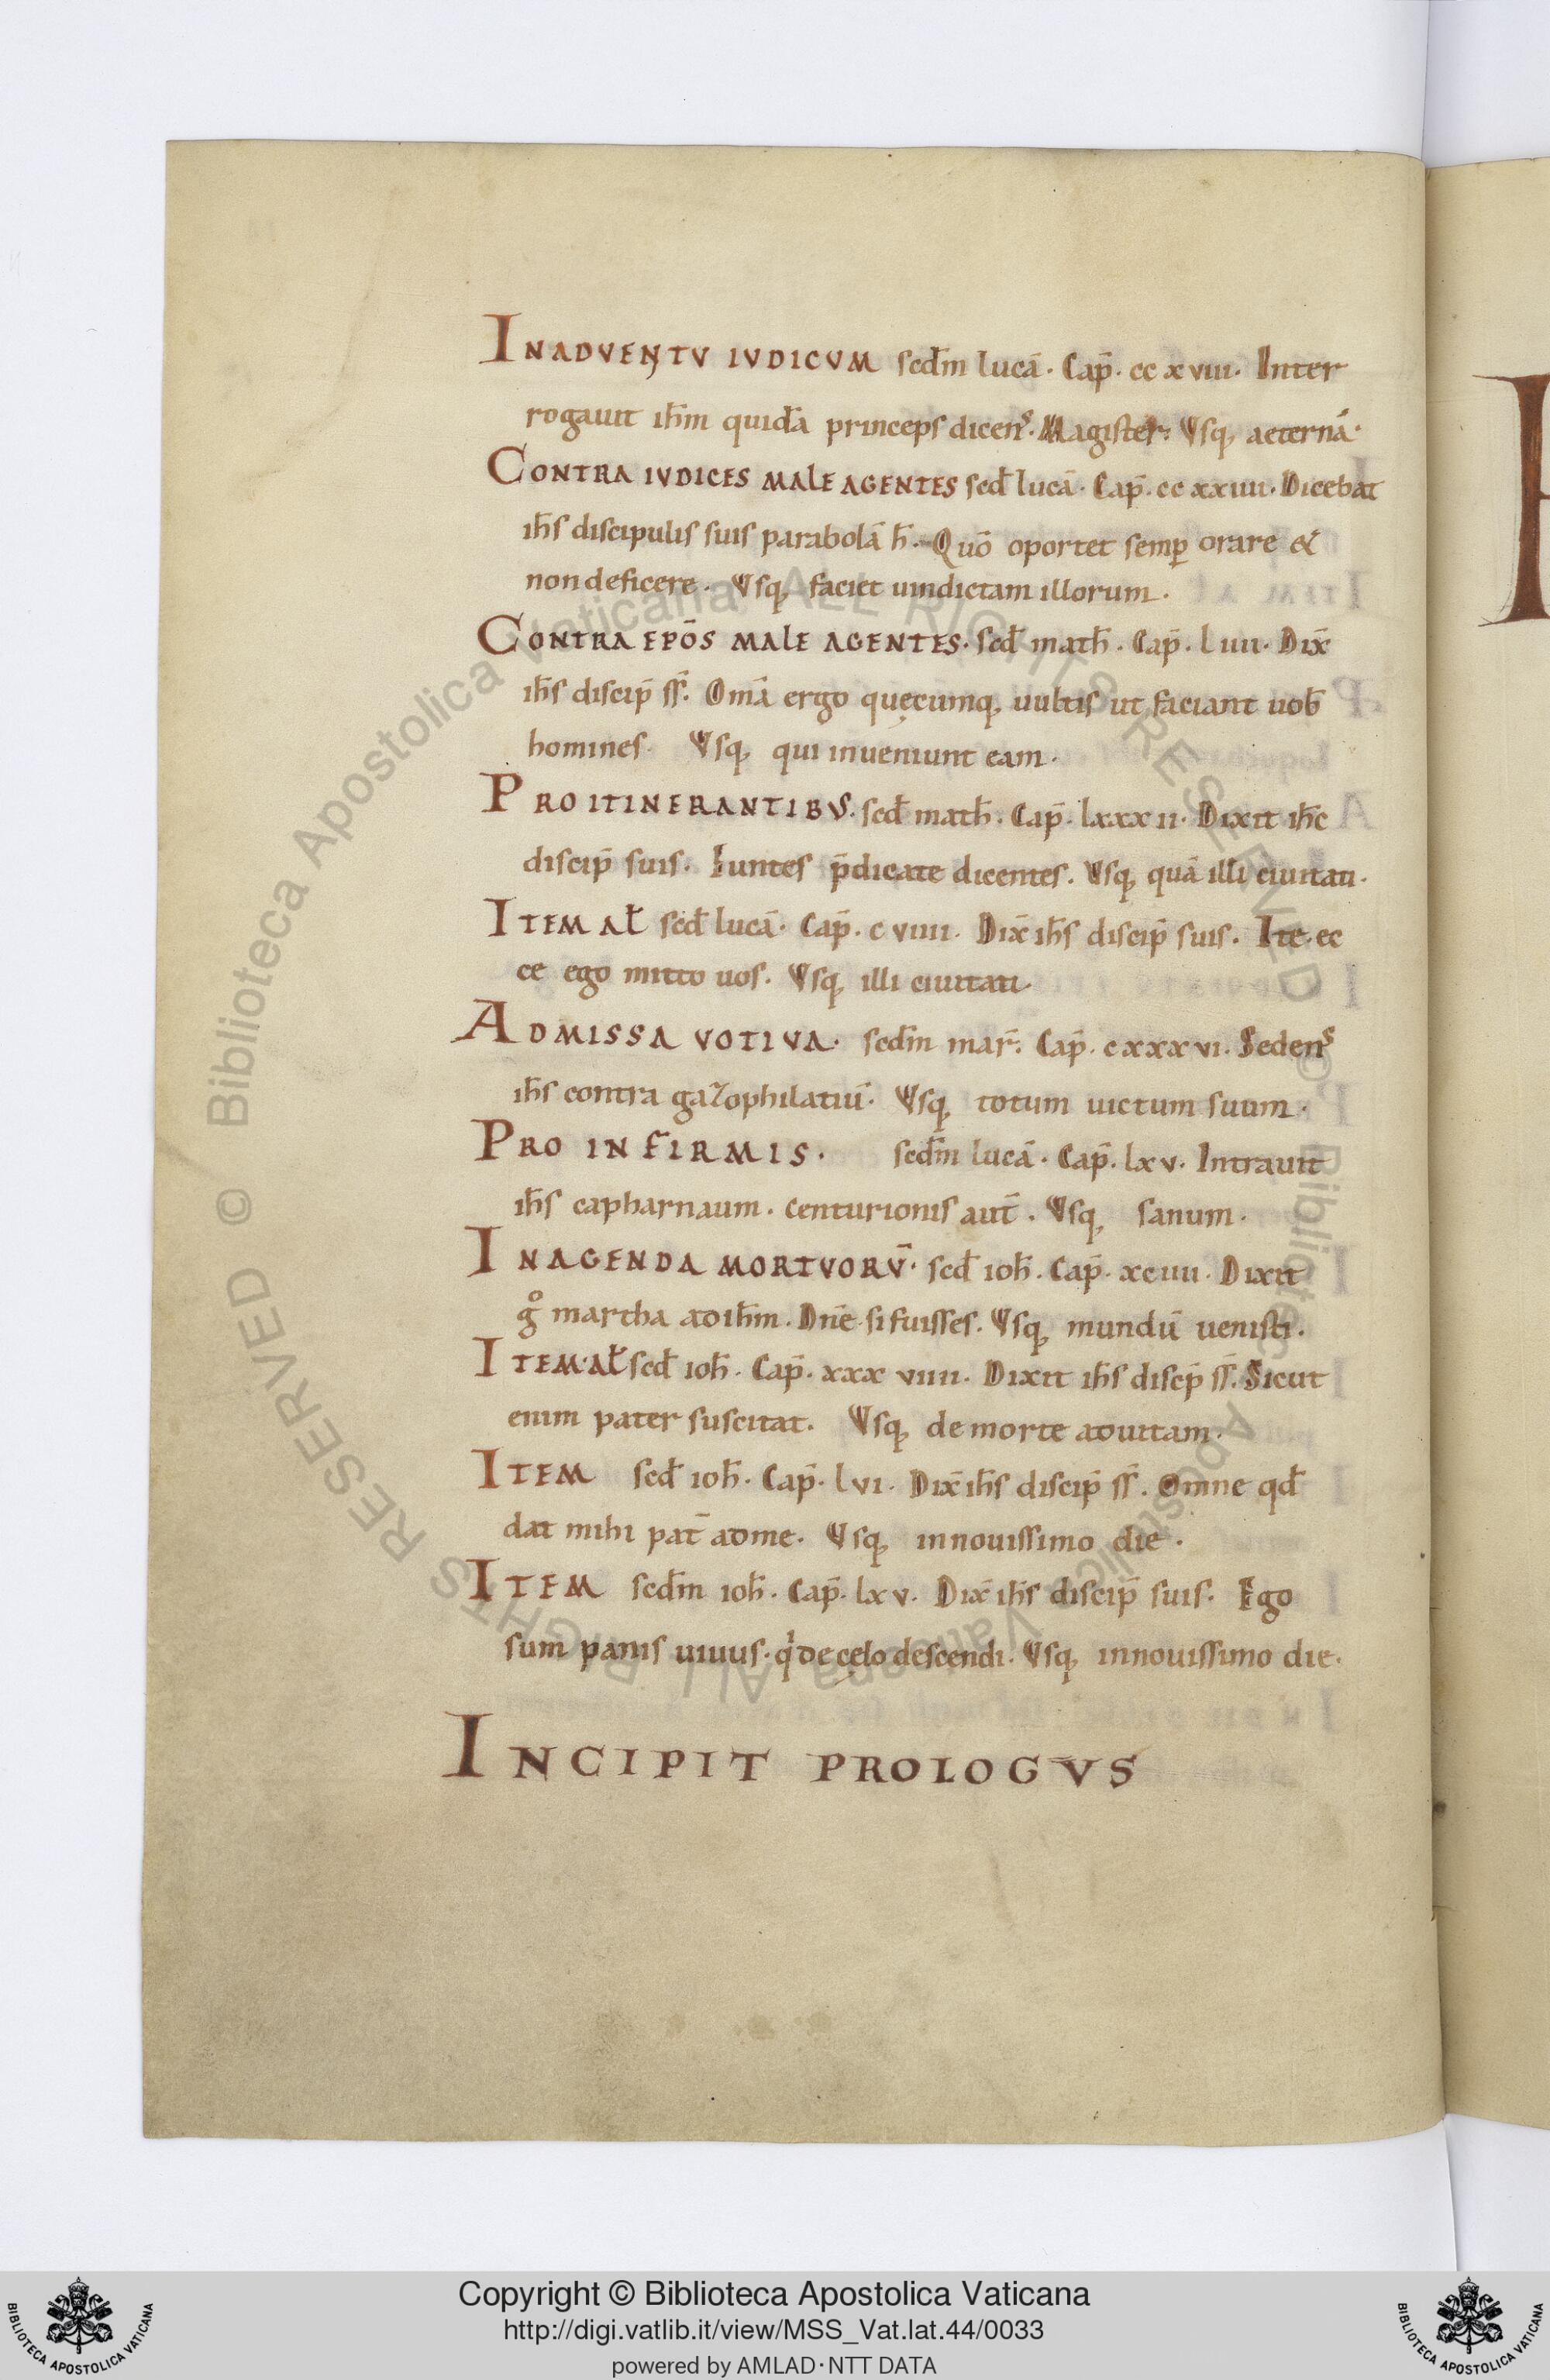 INADVENTV IVDICVM secd̄m lucā. Cap̄. cc xviii. Inter
rogauit ih̄m quidā princeps dicens. Magister. Vsq; aeternā.
CONTRA IVDICES MALE AGENTES scd̄ lucā. Cap̄. cc xxiiii. Dicebat
ih̄s discipulis suis parabolā h̄. Quō oportet semp̄ orare &
non deficere. Vsq; faciet uindictam illorum.
CONTRA EPŌS MALE AGENTES. scd̄ math̄. Cap̄. l iiii. Dix̄
ih̄s discip̄ ss̄. Om̄ā ergo quęcumq; uultis ut faciant uob̄
homines. Vsq; qui inueniunt eam.
PRO ITINERANTIBVS. scd̄ math̄. Cap̄. lxxx ii. Dixit ih̄c
discip̄ suis. Euntes p̄dicate dicentes. Vsq; quā illi ciuitati.
ITEM AL̄ scd̄ lucā. Cap̄. c viiii. Dix̄ ih̄s discip̄ suis. Ite. ec
ce ego mitto uos. Vsq; illi ciuitati.
AD MISSA VOTIVA. scd̄m mar̄. Cap̄. c xxx vi. Sedens
ih̄s contra gazophilatiū. Vsq; totum uictum suum.
PRO INFIRMIS. scd̄m lucā. Cap̄. lxv. Intrauit
ih̄s capharnaum. centurionis aut̄. Vsq; sanum.
IN AGENDA MORTVORV̄. scd̄ ioh̄. Cap̄. xciiii. Dixit
gͦ martha ad ih̄m. Dn̄e si fuisses. Vsq; mundū uenisti.
ITEM. AL̄ scd̄ ioh̄. Cap̄. xxx viiii. Dixit ih̄s discip̄ ss̄. Sicut
enim pater suscitat. Vsq; de morte ad uitam.
ITEM scd̄ ioh̄. Cap̄. l vi. Dix̄ ih̄s discip̄ ss̄. Omne qd̄
dat mihi pat̄ ad me. Vsq; in nouissimo die.
ITEM scd̄m ioh̄. Cap̄. lxv. Dix̄ ih̄s discip̄ suis. Ego
sum panis uiuus. qi de cęlo descendi. Vsq; in nouissimo die.
INCIPIT PROLOGVS
© Biblioteca Apostolica Vaticana ALL RIGHTS RESERVED © Biblioteca Apostolica Vaticana ALL RIGHTS RESERVED
Copyright © Biblioteca Apostolica Vaticana
http://digi.vatlib.it/view/MSS_Vat.lat.44/0033
powered by AMLAD·NTT DATA
BIBLIOTECA APOSTOLICA VATICANA
BIBLIOTECA APOSTOLICA VATICANA